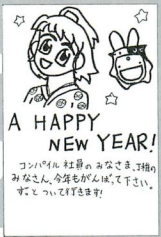 A HAPPY
NEW YEAR!
コンパイル社員のみなさま、
みなさん、今年もがんばって下さい。
ずっとついて行きます!